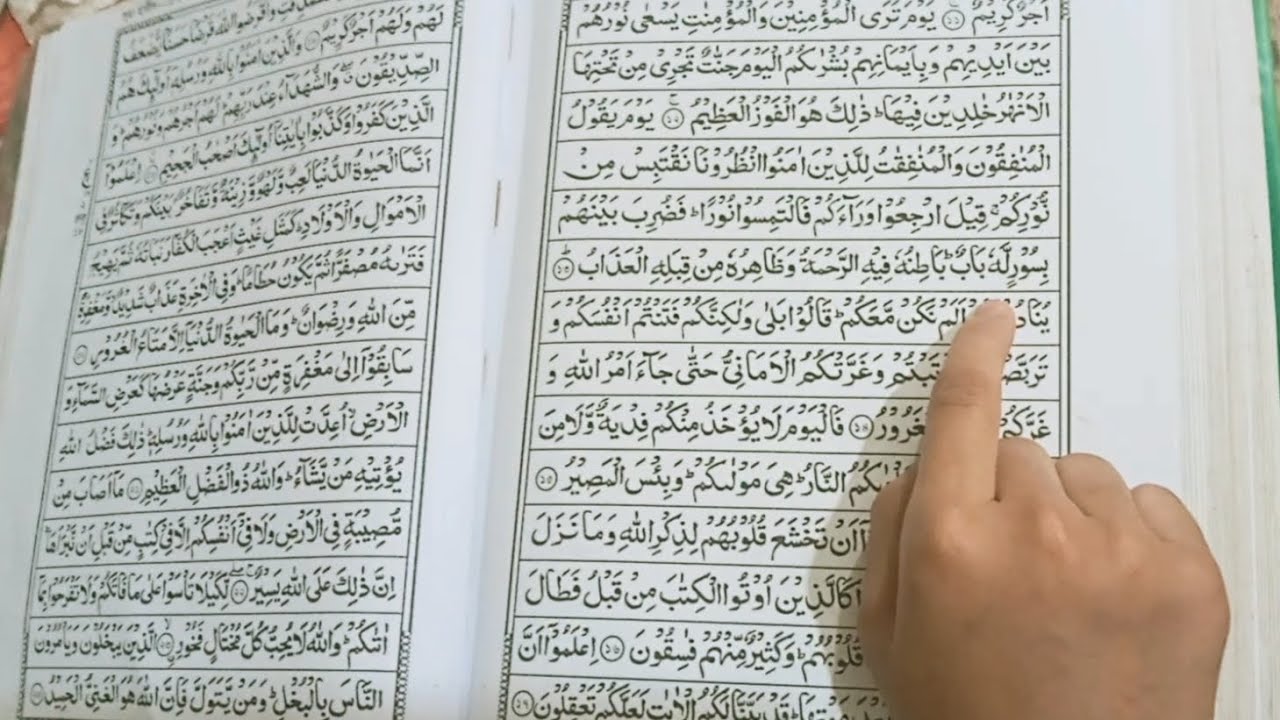 اَجْرٌ كَرِيْمٌ ۝ يَوْمَ تَرَى الْمُؤْمِنِيْنَ وَالْمُؤْمِنٰتِ يَسْعٰى نُوْرُهُمْ
بَيْنَ اَيْدِيْهِمْ وَبِاَيْمَانِهِمْ بُشْرٰىكُمُ الْيَوْمَ جَنّٰتٌ تَجْرِىْ مِنْ تَحْتِهَا
الْاَنْهٰرُ خٰلِدِيْنَ فِيْهَا ؕ ذٰلِكَ هُوَ الْفَوْزُ الْعَظِيْمُ ۝ يَوْمَ يَقُوْلُ
الْمُنٰفِقُوْنَ وَالْمُنٰفِقٰتُ لِلَّذِيْنَ اٰمَنُوا انْظُرُوْنَا نَقْتَبِسْ مِنْ
نُّوْرِكُمْ ۚ قِيْلَ ارْجِعُوْا وَرَآءَكُمْ فَالْتَمِسُوْا نُوْرًا ؕ فَضُرِبَ بَيْنَهُمْ
بِسُوْرٍ لَّهٗ بَابٌ ؕ بَاطِنُهٗ فِيْهِ الرَّحْمَةُ وَظَاهِرُهٗ مِنْ قِبَلِهِ الْعَذَابُ ۝
اَلَمْ نَكُنْ مَّعَكُمْ ؕ قَالُوْا بَلٰى وَلٰكِنَّكُمْ فَتَنْتُمْ اَنْفُسَكُمْ وَ
وَغَرَّتْكُمُ الْاَمَانِىُّ حَتّٰى جَآءَ اَمْرُ اللهِ وَ
الْغَرُوْرُ ۝ فَالْيَوْمَ لَا يُؤْخَذُ مِنْكُمْ فِدْيَةٌ وَّلَا مِنَ
النَّارُ ؕ هِىَ مَوْلٰىكُمْ ؕ وَبِئْسَ الْمَصِيْرُ ۝
اَنْ تَخْشَعَ قُلُوْبُهُمْ لِذِكْرِ اللهِ وَمَا نَزَلَ
كَالَّذِيْنَ اُوْتُوا الْكِتٰبَ مِنْ قَبْلُ فَطَالَ
قُلُوْبُهُمْ ؕ وَكَثِيْرٌ مِّنْهُمْ فٰسِقُوْنَ ۝ اِعْلَمُوْٓا اَنَّ
قَدْ بَيَّنَّا لَكُمُ الْاٰيٰتِ لَعَلَّكُمْ تَعْقِلُوْنَ
لَهُمْ وَلَهُمْ اَجْرٌ كَرِيْمٌ ۝ وَالَّذِيْنَ اٰمَنُوْا بِاللهِ وَرُسُلِهٖٓ اُولٰٓئِكَ هُمُ
الصِّدِّيْقُوْنَ ۖ وَالشُّهَدَآءُ عِنْدَ رَبِّهِمْ ؕ لَهُمْ اَجْرُهُمْ وَنُوْرُهُمْ ؕ وَ
الَّذِيْنَ كَفَرُوْا وَكَذَّبُوْا بِاٰيٰتِنَآ اُولٰٓئِكَ اَصْحٰبُ الْجَحِيْمِ ۝ اِعْلَمُوْٓا
اَنَّمَا الْحَيٰوةُ الدُّنْيَا لَعِبٌ وَّلَهْوٌ وَّزِيْنَةٌ وَّتَفَاخُرٌۢ بَيْنَكُمْ وَتَكَاثُرٌ فِى
الْاَمْوَالِ وَالْاَوْلَادِ ؕ كَمَثَلِ غَيْثٍ اَعْجَبَ الْكُفَّارَ نَبَاتُهٗ ثُمَّ يَهِيْجُ
فَتَرٰىهُ مُصْفَرًّا ثُمَّ يَكُوْنُ حُطَامًا ؕ وَفِى الْاٰخِرَةِ عَذَابٌ شَدِيْدٌ وَّمَغْفِرَةٌ
مِّنَ اللهِ وَرِضْوَانٌ ؕ وَمَا الْحَيٰوةُ الدُّنْيَآ اِلَّا مَتَاعُ الْغُرُوْرِ ۝
سَابِقُوْٓا اِلٰى مَغْفِرَةٍ مِّنْ رَّبِّكُمْ وَجَنَّةٍ عَرْضُهَا كَعَرْضِ السَّمَآءِ وَ
الْاَرْضِ ۙ اُعِدَّتْ لِلَّذِيْنَ اٰمَنُوْا بِاللهِ وَرُسُلِهٖ ؕ ذٰلِكَ فَضْلُ اللهِ
يُؤْتِيْهِ مَنْ يَّشَآءُ ؕ وَاللهُ ذُو الْفَضْلِ الْعَظِيْمِ ۝ مَآ اَصَابَ مِنْ
مُّصِيْبَةٍ فِى الْاَرْضِ وَلَا فِىْٓ اَنْفُسِكُمْ اِلَّا فِىْ كِتٰبٍ مِّنْ قَبْلِ اَنْ نَّبْرَاَهَا ؕ
اِنَّ ذٰلِكَ عَلَى اللهِ يَسِيْرٌ ۝ لِّكَيْلَا تَاْسَوْا عَلٰى مَا فَاتَكُمْ وَلَا تَفْرَحُوْا بِمَآ
اٰتٰىكُمْ ؕ وَاللهُ لَا يُحِبُّ كُلَّ مُخْتَالٍ فَخُوْرِ ۝ الَّذِيْنَ يَبْخَلُوْنَ وَيَاْمُرُوْنَ
النَّاسَ بِالْبُخْلِ ؕ وَمَنْ يَّتَوَلَّ فَاِنَّ اللهَ هُوَ الْغَنِىُّ الْحَمِيْدُ ۝